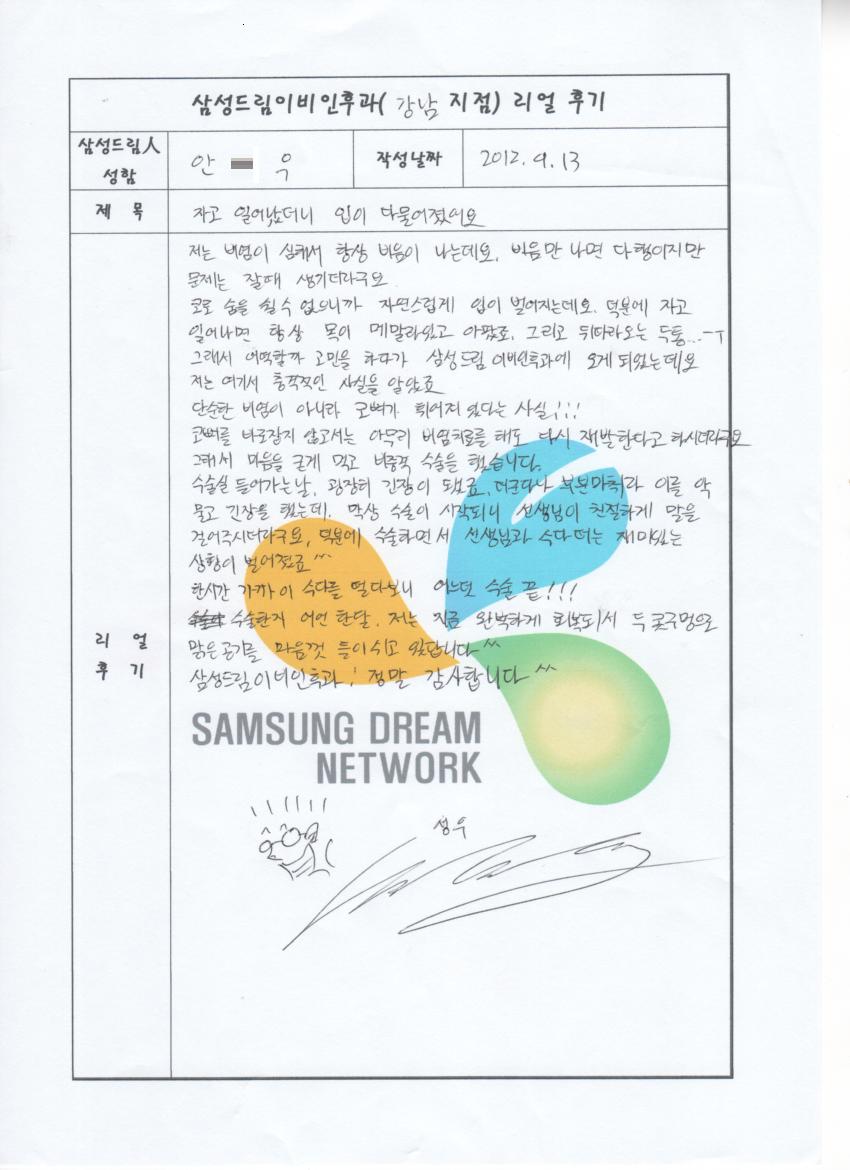 삼성드림이비인후과( 강남 지점) 리얼 후기
삼성드림人 성함
안 우
작성날짜
2012. 9. 13
제 목
자고 일어났더니 입이 다물어졌어요
리 얼 후 기
저는 비염이 심해서 항상 비음이 나는데요, 비음만 나면 다행이지만
문제는 잘때 생기더라구요
코로 숨을 쉴수 없으니까 자연스럽게 입이 벌어지는데요. 덕분에 자고
일어나면 항상 목이 메말라있고 아팠죠, 그리고 뒤따라오는 두통...ㅡㅜ
그래서 어떡할까 고민을 하다가 삼성드림 이비인후과에 오게 되었는데요
저는 여기서 충격적인 사실을 알았죠
단순한 비염이 아니라 코뼈가 휘어져 있다는 사실!!!
코뼈를 바로잡지 않고서는 아무리 비염치료를 해도 다시 재발한다고 하시더라구요
그래서 마음을 굳게 먹고 비중격 수술을 했습니다.
수술실 들어가는날, 굉장히 긴장이 됐죠, 더군다나 부분마취라 이를 악
물고 긴장을 했는데, 막상 수술이 시작되니 선생님이 친절하게 말을
걸어주시더라구요, 덕분에 수술하면서 선생님과 수다 떠는 재미있는
상황이 벌어졌죠 ^^
한시간 가까이 수다를 떨다보니 어느덧 수술 끝!!!
수술한지 어언 한달. 저는 지금 완벽하게 회복되서 두 콧구멍으로
맑은공기를 마음껏 들이쉬고 있답니다 ^^
삼성드림이비인후과! 정말 감사합니다 ^^
SAMSUNG DREAM
NETWORK
성우